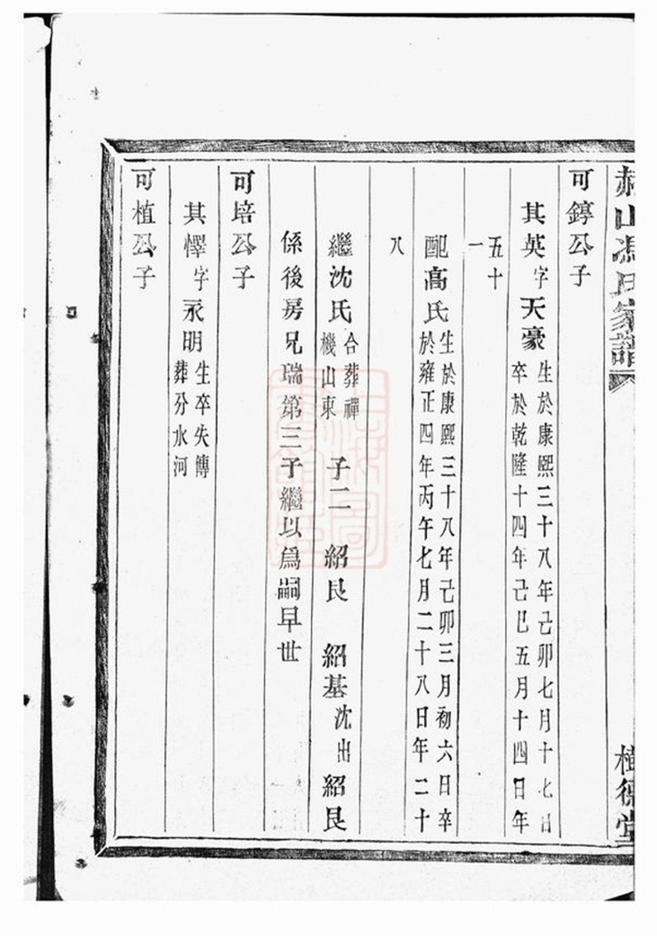 山馮氏家譜
樹德堂
可錞公子
其英字天豪生於康熙三十八年己卯七月十七日
卒於乾隆十四年己巳五月十四日年
五十
一
配高氏生於康熙三十八年己卯三月初六日卒
於雍正四年丙午七月二十八日年二十
八
繼沈氏合葬禪
機山東 子二 紹艮 紹基沈出紹艮
係後房兄瑞第三子繼以爲嗣早世
可培公子
其懌字永明生卒失傳
葬分水河
可植公子